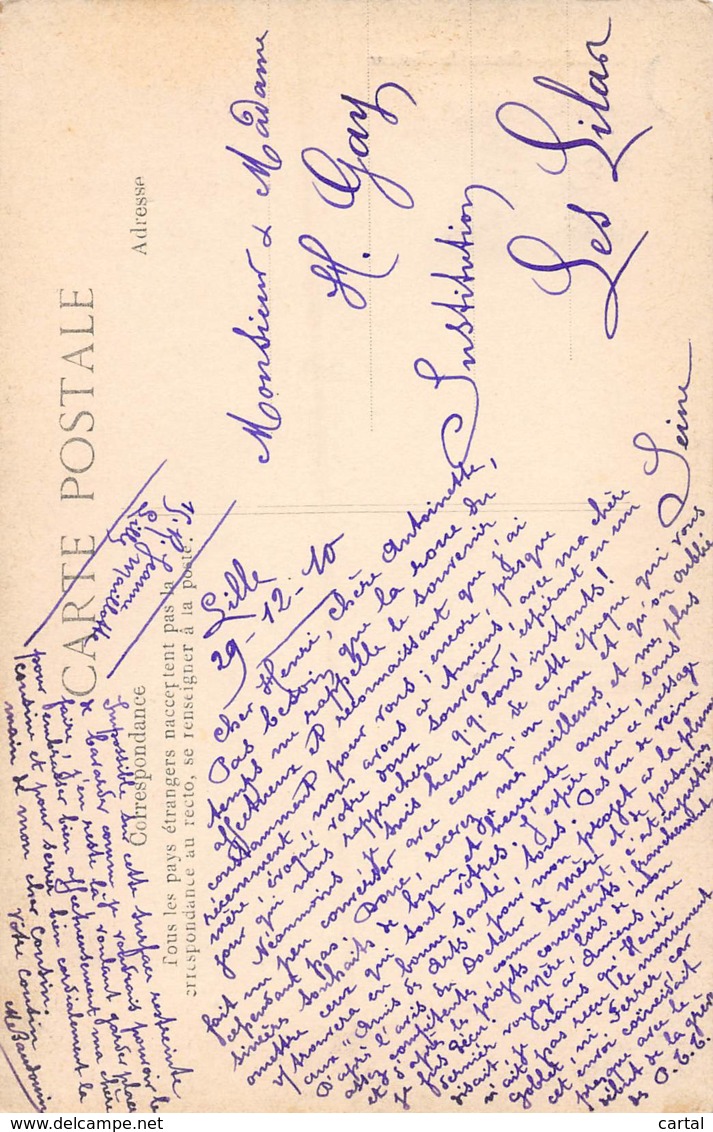 CARTE POSTALE
Correspondance
Adresse
Tous les pays étrangers n'acceptent pas la
correspondance au recto, se renseigner à la poste.
Monsieur & Madame
H. Gay
Institution
Les Lilas
Seine
Lille
29-12-10
Cher Henri, chère Antoinette,
Pas besoin que la roue du
temps me rappelle le souvenir
affectueux et reconnaissant que j'ai
constamment pour vous ; encore, presque
récemment, nous avons à Amiens, avec ma chère
mère, évoqué votre doux souvenir, espérant en un
jour qui nous rapprochera qq. bons instants !
Néanmoins je suis heureux de cette époque qui vous
fait un peu converser avec ceux qu'on aime et qu'on oublie
cependant pas ! Donc, recevez mes meilleurs et mes plus
sincères souhaits de bonne et heureuse année, sans
omettre ceux qui sont vôtres. J'espère que ce message
y trouvera en bonne santé, tous. Pas en de reine
aux "Amis des Arts" pour mon projet à la plume
D'après l'avis du Docteur de mère et de personnes
assez compétentes, comme souvent, c'est injustice
et d'après les projets concurrents, franchement
je fus déçu ! Mère, lors de mon
dernier voyage à Amiens, me
disait, je crains qu'Henri
n'ait pas reçu le monument
Goblet, ni Ferrer, car
cet envoi coïncidait
presque avec le
début de la grève
des P.T.T.
Impossible sur cette surface restreinte
de bavarder comme je voudrais pouvoir le
faire. J'en reste là, voulant garder place
pour l'embrasser bien affectueusement ma chère
cousine et pour serrer bien cordialement la
main de mon cher Cousin.
Votre cousin
M. Baudouin
Jeanne Maillotte
Lille